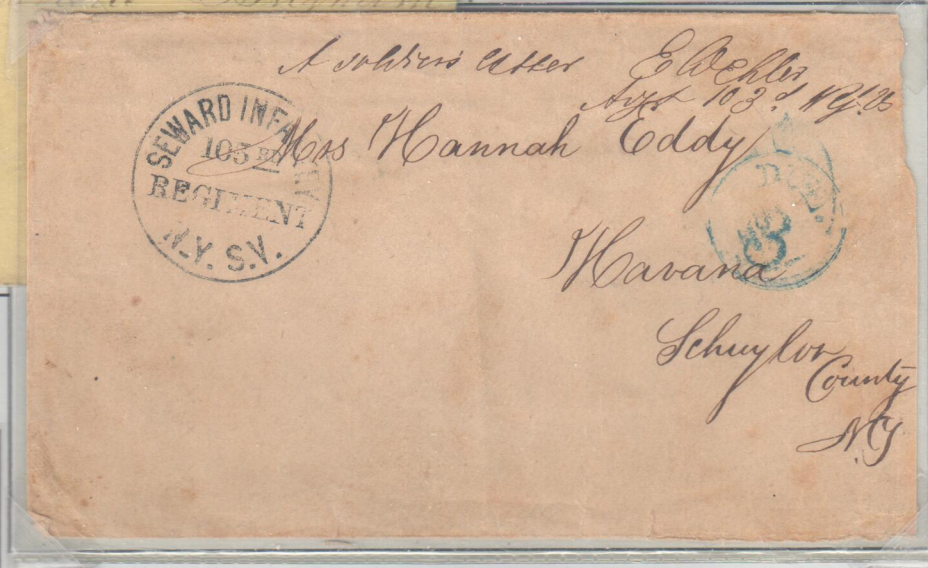 A soldiers letter
E Oehler
Adjt 103.d N.Y.
SEWARD INFANTRY
103RD
REGIMENT
N.Y. S.V.
Mrs Hannah Eddy
DUE
3
Havana
Schuylor
County
N.Y